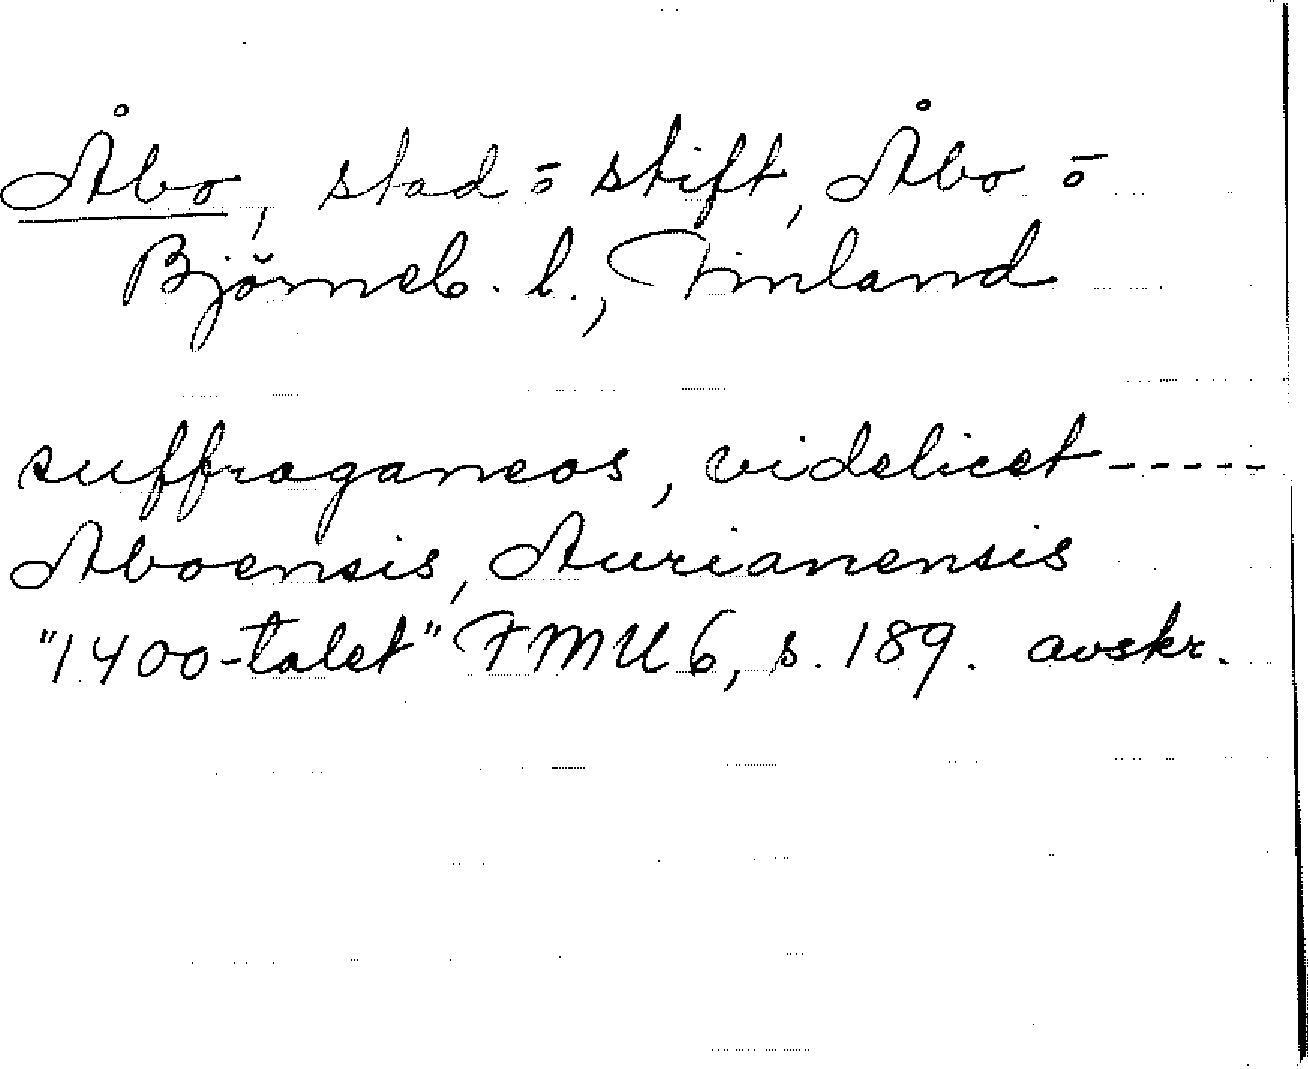 Åbo, stad o stift, Åbo o
Björneb. l., Finland
suffraganeos, videlicet -----
Aboensis, Aurianensis
"1400-talet" FMU 6, s. 189. avskr.